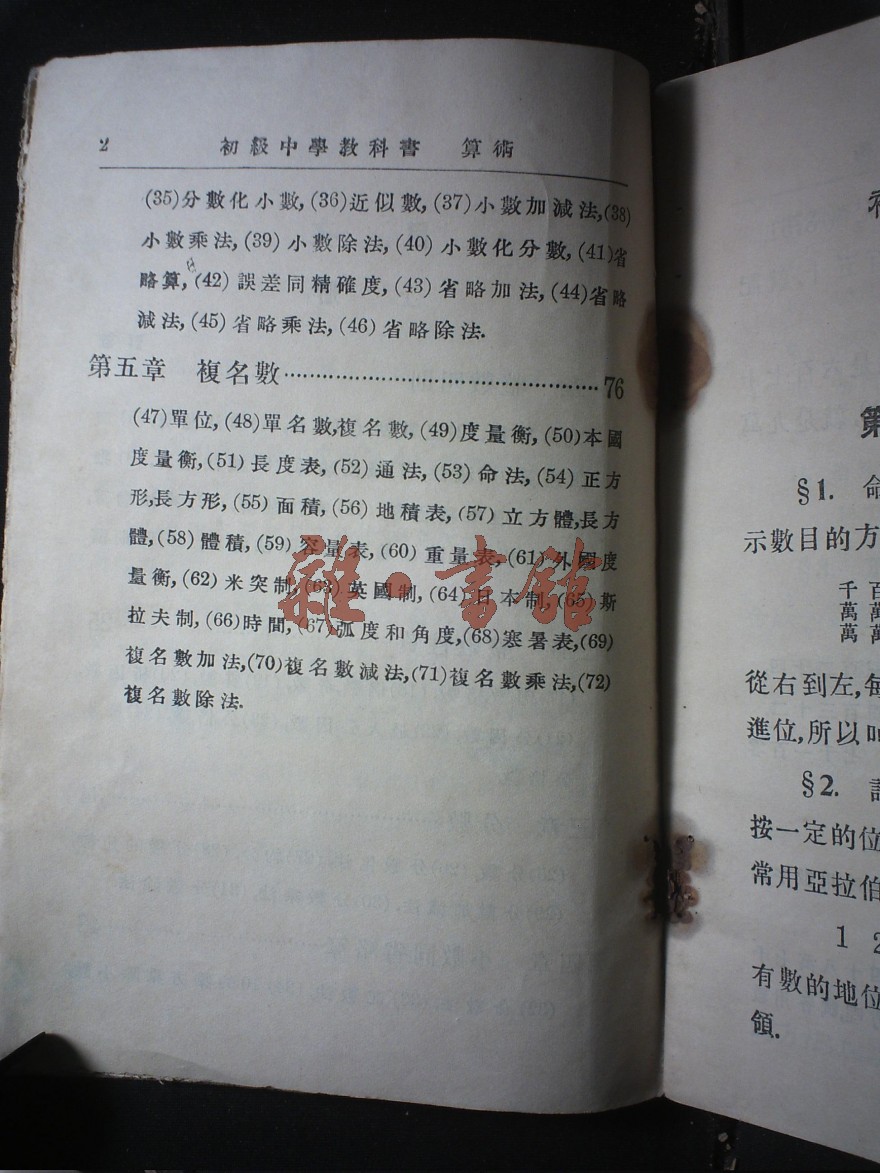 2 初級中學教科書 算術
(35)分數化小數,(36)近似數,(37)小數加減法,(38)
小數乘法,(39)小數除法,(40)小數化分數,(41)省
略算,(42)誤差同精確度,(43)省略加法,(44)省略
減法,(45)省略乘法,(46)省略除法.
第五章 複名數................................................76
(47)單位,(48)單名數,複名數,(49)度量衡,(50)本國
度量衡,(51)長度表,(52)通法,(53)命法,(54)正方
形,長方形,(55)面積,(56)地積表,(57)立方體,長方
體,(58)體積,(59)容量表,(60)重量表,(61)外國度
量衡,(62)米突制,(63)英國制,(64)日本制,(65)斯
拉夫制,(66)時間,(67)弧度和角度,(68)寒暑表,(69)
複名數加法,(70)複名數減法,(71)複名數乘法,(72)
複名數除法.
雜·書館
第
§1. 命
示數目的方
千百
萬萬
萬萬
從右到左,每
進位,所以叫
§2.
按一定的位
常用亞拉伯
1 2
有數的地位
領.